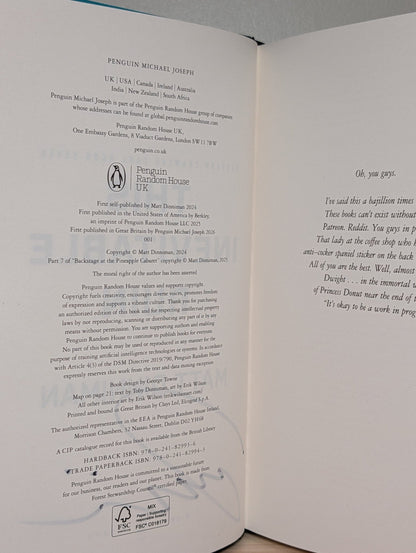 PENGUIN MICHAEL JOSEPH
UK | USA | Canada | Ireland | Australia
India | New Zealand | South Africa
Penguin Michael Joseph is part of the Penguin Random House group of companies
whose addresses can be found at global.penguinrandomhouse.com
Penguin Random House UK,
One Embassy Gardens, 8 Viaduct Gardens, London SW11 7BW
penguin.co.uk
Penguin
Random House
UK
First self-published by Matt Dinniman 2024
First published in the United States of America by Berkley,
an imprint of Penguin Random House LLC
First published in Great Britain by Penguin Michael Joseph 2026
001
Copyright © Matt Dinniman, 2024
Part 7 of "Backstage at the Pineapple Cabaret" copyright © Matt Dinniman, 2025
The moral right of the author has been asserted
Penguin Random House values and supports copyright.
Copyright fuels creativity, encourages diverse voices, promotes freedom
of expression and supports a vibrant culture. Thank you for purchasing
an authorized edition of this book and for respecting intellectual property
laws by not reproducing, scanning or distributing any part of it by any
means without permission. You are supporting authors and enabling
Penguin Random House to continue to publish books for everyone.
No part of this book may be used or reproduced in any manner for the
purpose of training artificial intelligence technologies or systems. In accordance
with Article 4(3) of the DSM Directive 2019/790, Penguin Random House
expressly reserves this work from the text and data mining exception
Book design by George Towne
Map on page 21: text by Toby Dinniman, art by Erik Wilson
All other interior art by Erik Wilson
Printed and bound in Great Britain by Clays Ltd, Elcograf S.p.A.
The authorized representative in the EEA is Penguin Random House Ireland,
Morrison Chambers, 32 Nassau Street, Dublin D02 YH68
A CIP catalogue record for this book is available from the British Library
HARDBACK ISBN: 978-0-241-82993-6
TRADE PAPERBACK ISBN: 978-0-241-82994-3
Penguin Random House is committed to a sustainable future
for our business, our readers and our planet. This book is made from
Forest Stewardship Council® certified paper.
FSC
MIX
Paper | Supporting
responsible forestry
FSC® C018179
Oh, you guys.
I've said this a bajillion times
These books can't exist without
Patreon. Reddit. You guys in p
That lady at the coffee shop who h
anti-cocker spaniel sticker on the back
All of you are the best. Well, almost
Dwight . . . in the immortal w
of Princess Donut near the end of t
"It's okay to be a work in progr